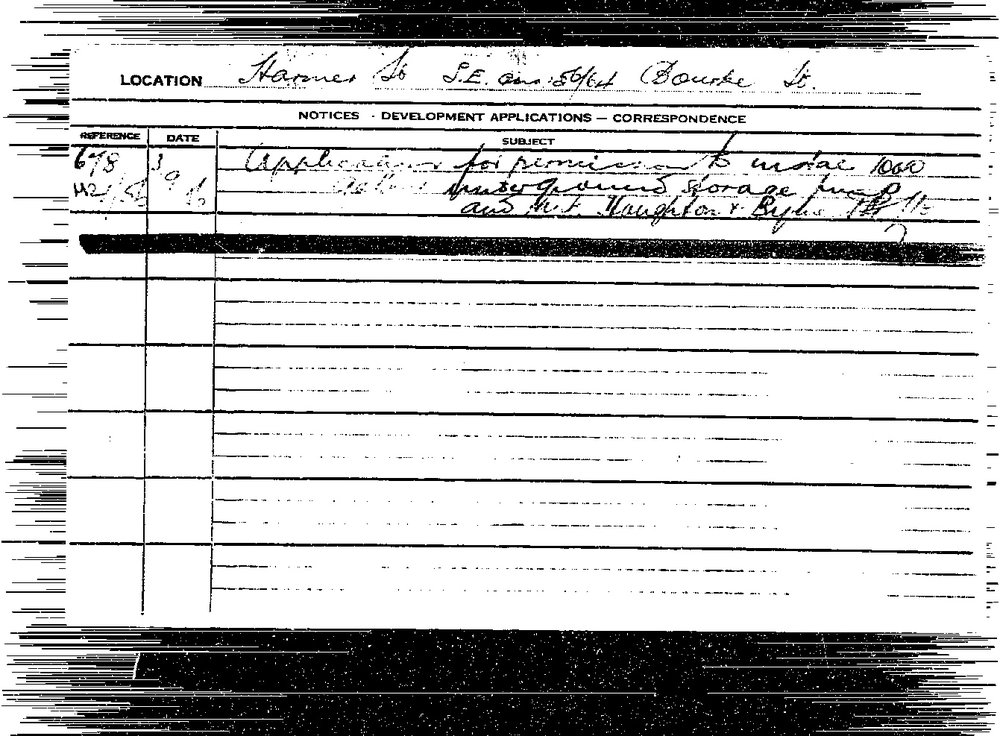 LOCATION Harmer St S.E. cnr 56/64 Bourke St.
NOTICES - DEVELOPMENT APPLICATIONS — CORRESPONDENCE
REFERENCE DATE SUBJECT
678 3 Application for permission to install 1000
9 gallon underground storage pump
and Haughton & Byrne Pty Ltd